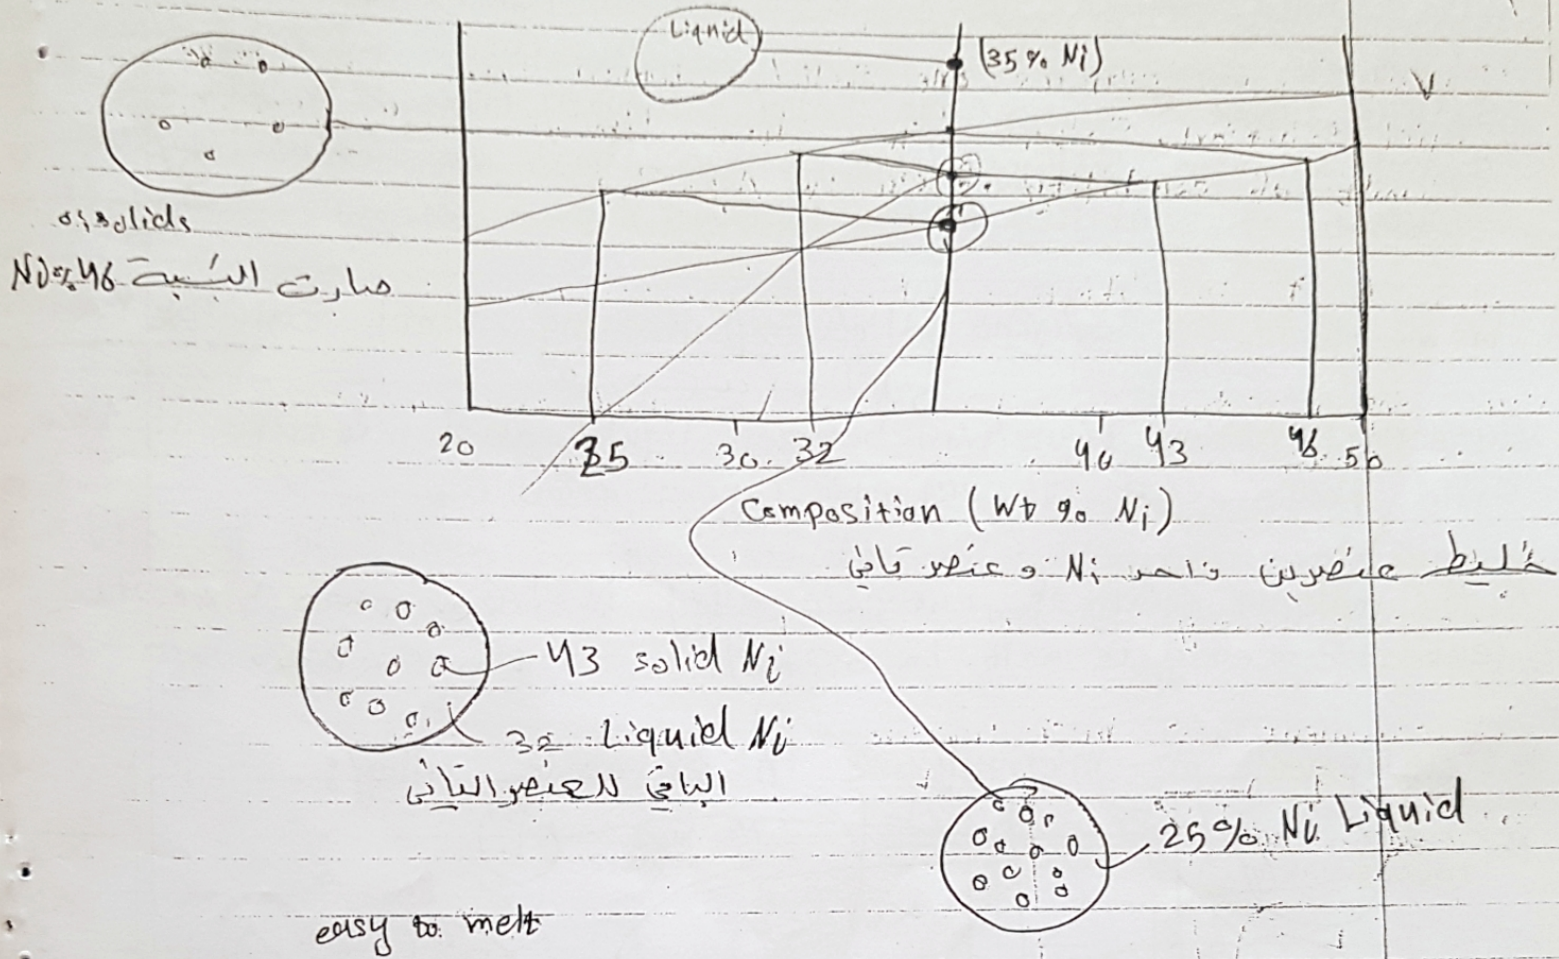 Liquid
(35% Ni)
of solids
صارت النسبة 46%=Ni
20
25
30
32
40
43
46
50
Composition (Wt % Ni)
خليط عنصرين واحد Ni و عنصر تاني
43 solid Ni
32 Liquid Ni
الباقي للعنصر التاني
25% Ni Liquid
easy to melt